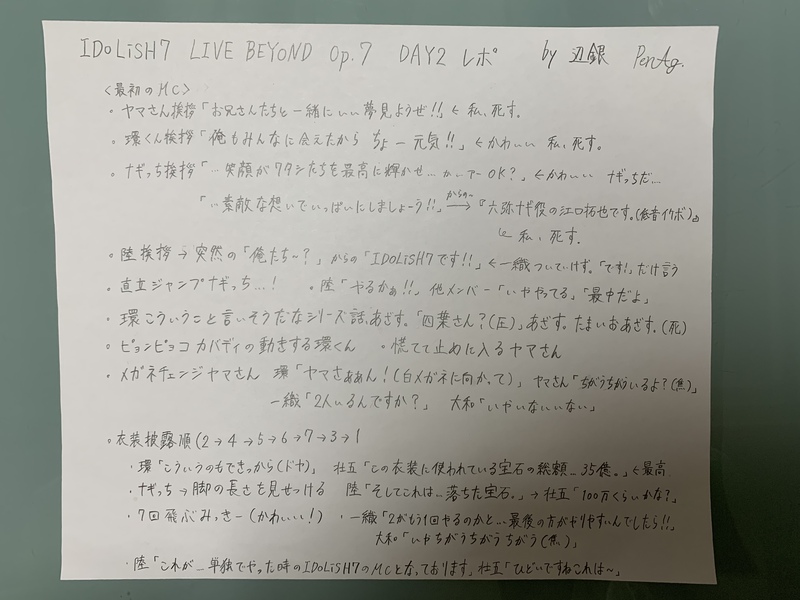 IDOLiSH7 LIVE BEYOND Op.7 DAY2 レポ by 辺銀 PenAg.
<最初のMC>
。ヤマさん挨拶「お兄さんたちと一緒にいい夢見ようぜ!!」← 私、死す。
。環くん挨拶「俺もみんなに会えたから ちょー元気!!」←かわいい 私、死す。
。ナギっち挨拶「…笑顔がワタシたちを最高に輝かせ… かいアー OK?」←かわいい ナギっちだ…
「…素敵な想いでいっぱいにしましょーう!!」からの→『六弥ナギ役の江口拓也です。(低音イケボ)』
私、死す.
。陸挨拶→突然の「俺たち〜?」からの「IDOLiSH7です!!」←一織ついていけず。「です!」だけ言う
。直立ジャンプナギっち…! 。陸「やるかぁ!!」他メンバー「いややってる」「最中だよ」
。環こういうこと言いそうだなシリーズ話、あざす。「四葉さん?(圧)」あざす。たまいおあざす。(死)
。ピョンピョコカバディの動きする環くん 。慌てて止めに入るヤマさん
。メガネチェンジヤマさん 環「ヤマさぁぁん!(白メガネに向かって)」 ヤマさん「ちがうちがういるよ?(焦)」
一織「2人いるんですか?」 大和「いやいないいない」
。衣装披露順(2→4→5→6→7→3→1
・環「こういうのもできっから(ドヤ)」 壮五「この衣装に使われている宝石の総額…35億。」←最高
・ナギっち→脚の長さを見せつける 陸「そしてこれは…落ちた宝石。」→壮五「100万くらいかな?」
・7回飛ぶみっきー(かわいい!) ・一織「2がもう1回やるのかと…最後の方がやりやすいんでしたら!!」
大和「いやちがうちがうちがう(焦)」
・陸「これが…単独でやった時のIDOLiSH7のMCとなっております」壮五「ひどいですねこれは〜」